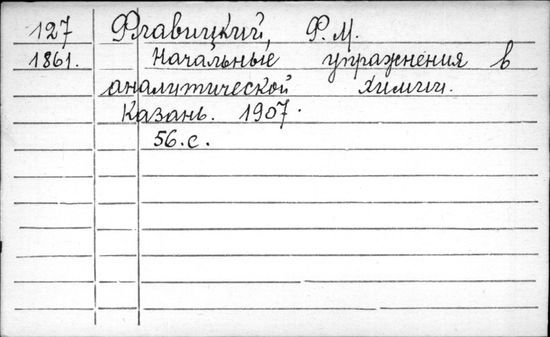 127 Флавицкий, Ф. М.
1861. Начальные упражнения в
аналитической химии.
Казань. 1907.
56. с.